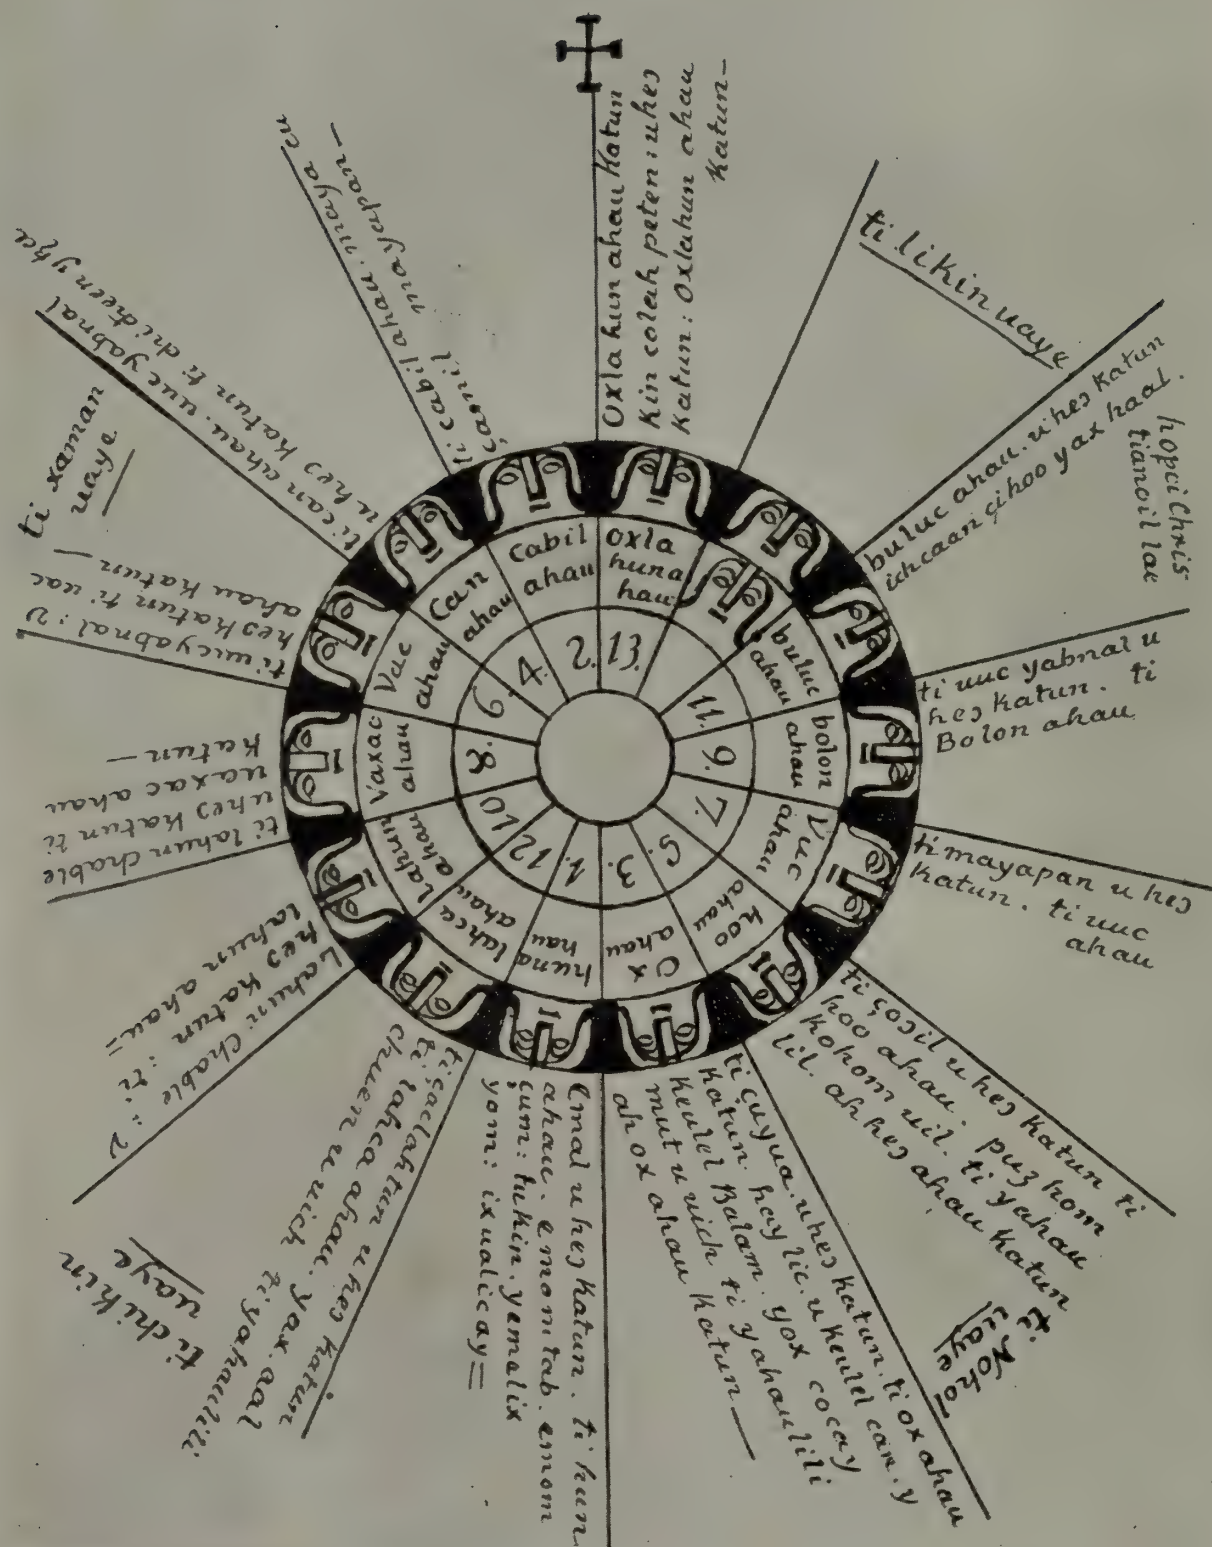 Oxla hun ahau Katun
Kin colah peten : u heɔ
Katun : Oxlahun ahau
Katun—
ti likin uaye
buluc ahau. u heɔ katun
ichcaan çihoo yax haal.
hopci Chris
tianoil lae
ti uuc yabnal u
heɔ katun. ti
Bolon ahau
ti mayapan u heɔ
Katun. ti uuc
ahau
ti çoɔil u heɔ Katun ti
hoo ahau. puz hom
Kohom uil. ti yahau
lil. ah heɔ ahau Katun
ti Nohol
uaye
ti çuyua. u heɔ katun. ti ox ahau
Katun. hay lic. u keulel can. y
Keulel Balam. yox cocay
mut u uich ti yahaulili
ah ox ahau Katun—
Emal u heɔ Katun. ti hun
ahau. emom tab. emom
çum : tu kin. yemelix
yom : ixualicay=
ti çaclahtun u heɔ Katun
ti lahca ahau. yax aal
chuen u uich ti yahaulili
ti chikin
uaye
Lahun Chable : v
heɔ Katun : ti
lahun ahau=
ti lahun chable
u heɔ katun ti
uaxac ahau
Katun—
ti uucyabnal : v
heɔ Katun ti uac
ahau Katun—
ti xaman
uaye
ti can ahau. uucyabnal
u heɔ Katun ti chicheen ytza
ti cabil ahau. maya cu
çamil mayapan—
oxla
huna
hau
buluc
ahau
bolon
ahau
Vuc
ahau
hoo
ahau
Ox
ahau
huna
hau
lahca
ahau
Lahun
ahau
Vaxac
ahau
Vac
ahau
Can
ahau
Cabil
ahau
13.
11.
9.
7.
5.
3.
1.
12
10
8.
6.
4.
2.